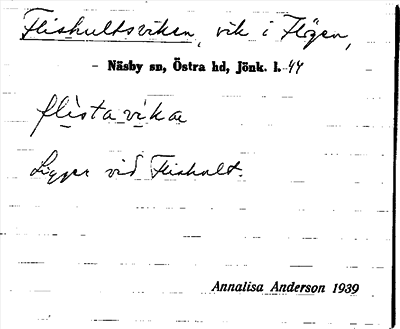 Flishultsviken, vik i Flögen,
Näsby sn, Östra hd, Jönk. l. 44
flistavika
Ligger vid Flishult.
Annalisa Anderson 1939